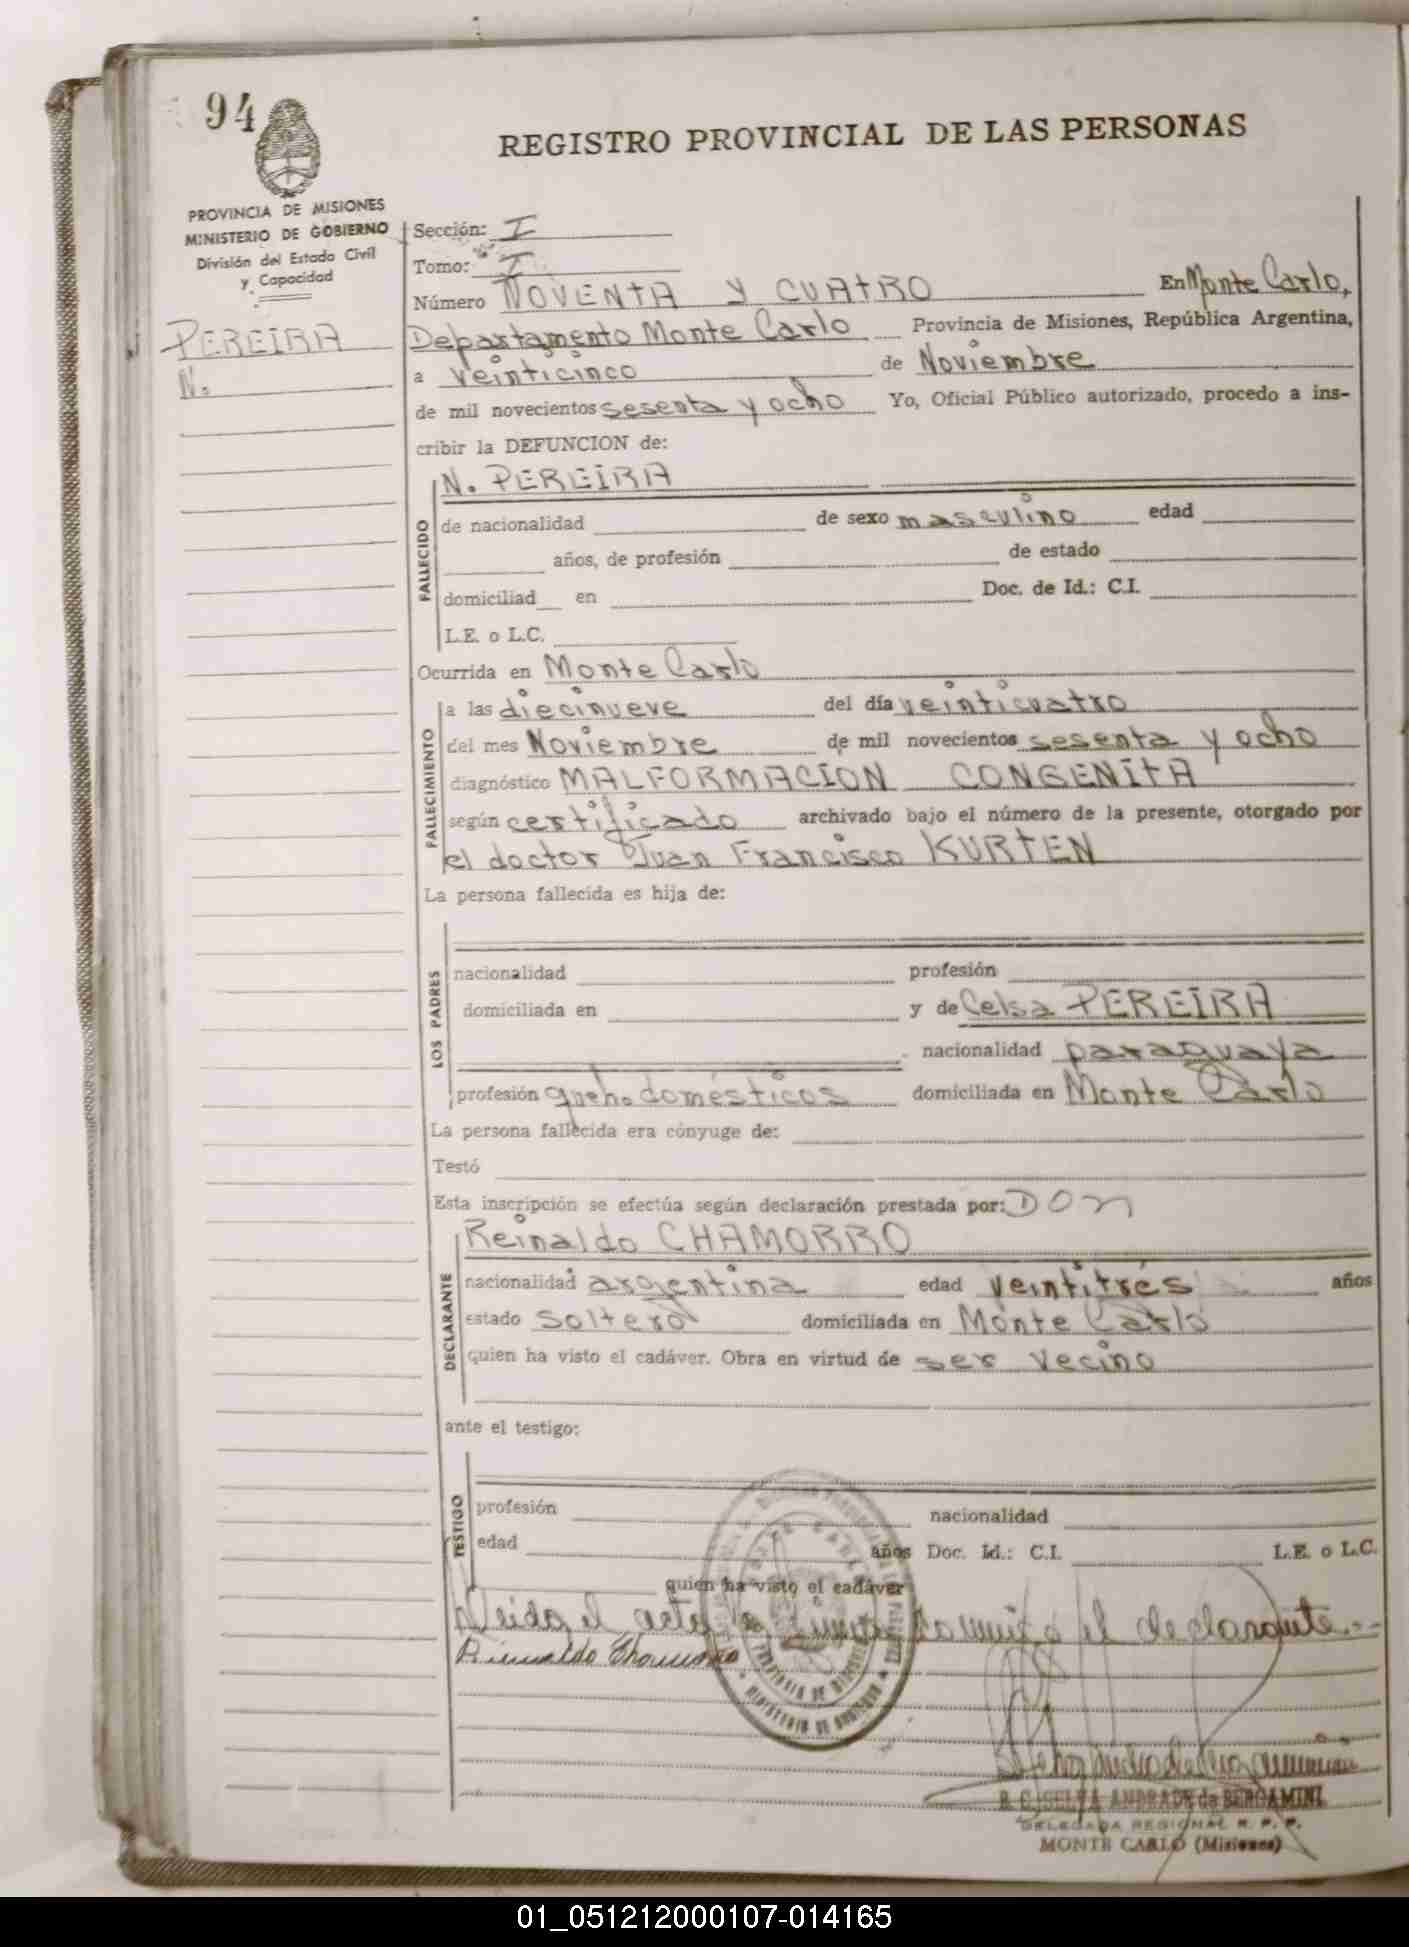 94
REGISTRO PROVINCIAL DE LAS PERSONAS
PROVINCIA DE MISIONES
MINISTERIO DE GOBIERNO
División del Estado Civil
y Capacidad
PEREIRA
N.
Sección: I
Tomo: I
Número NOVENTA Y CUATRO En Monte Carlo,
Departamento Monte Carlo Provincia de Misiones, República Argentina,
a veinticinco de Noviembre
de mil novecientos sesenta y ocho Yo, Oficial Público autorizado, procedo a ins-
cribir la DEFUNCION de:
N. PEREIRA
FALLECIDO
de nacionalidad de sexo masculino edad
años, de profesión de estado
domiciliad en Doc. de Id.: C.I.
L.E. o L.C.
Ocurrida en Monte Carlo
FALLECIMIENTO
a las diecinueve del día veinticuatro
del mes Noviembre de mil novecientos sesenta y ocho
diagnóstico MALFORMACION CONGENITA
según certificado archivado bajo el número de la presente, otorgado por
el doctor Juan Francisco KURTEN
La persona fallecida es hija de:
LOS PADRES
nacionalidad profesión
domiciliada en y de Celsa PEREIRA
nacionalidad paraguaya
profesión queh. domésticos domiciliada en Monte Carlo
La persona fallecida era cónyuge de:
Testó
Esta inscripción se efectúa según declaración prestada por: DON
Reinaldo CHAMORRO
DECLARANTE
nacionalidad argentina edad veintitrés años
estado soltero domiciliada en Monte Carlo
quien ha visto el cadáver. Obra en virtud de ser vecino
ante el testigo:
TESTIGO
profesión nacionalidad
edad años Doc. Id.: C.I. L.E. o L.C.
quien ha visto el cadáver
Leída el acta la conmigo el declarante.--
PROVINCIA DE MISIONES
MINISTERIO DE GOBIERNO
SELVA ANDRADE de BERGAMINI
DELEGADA REGIONAL R. P. P.
MONTE CARLO (Misiones)
01_051212000107-014165